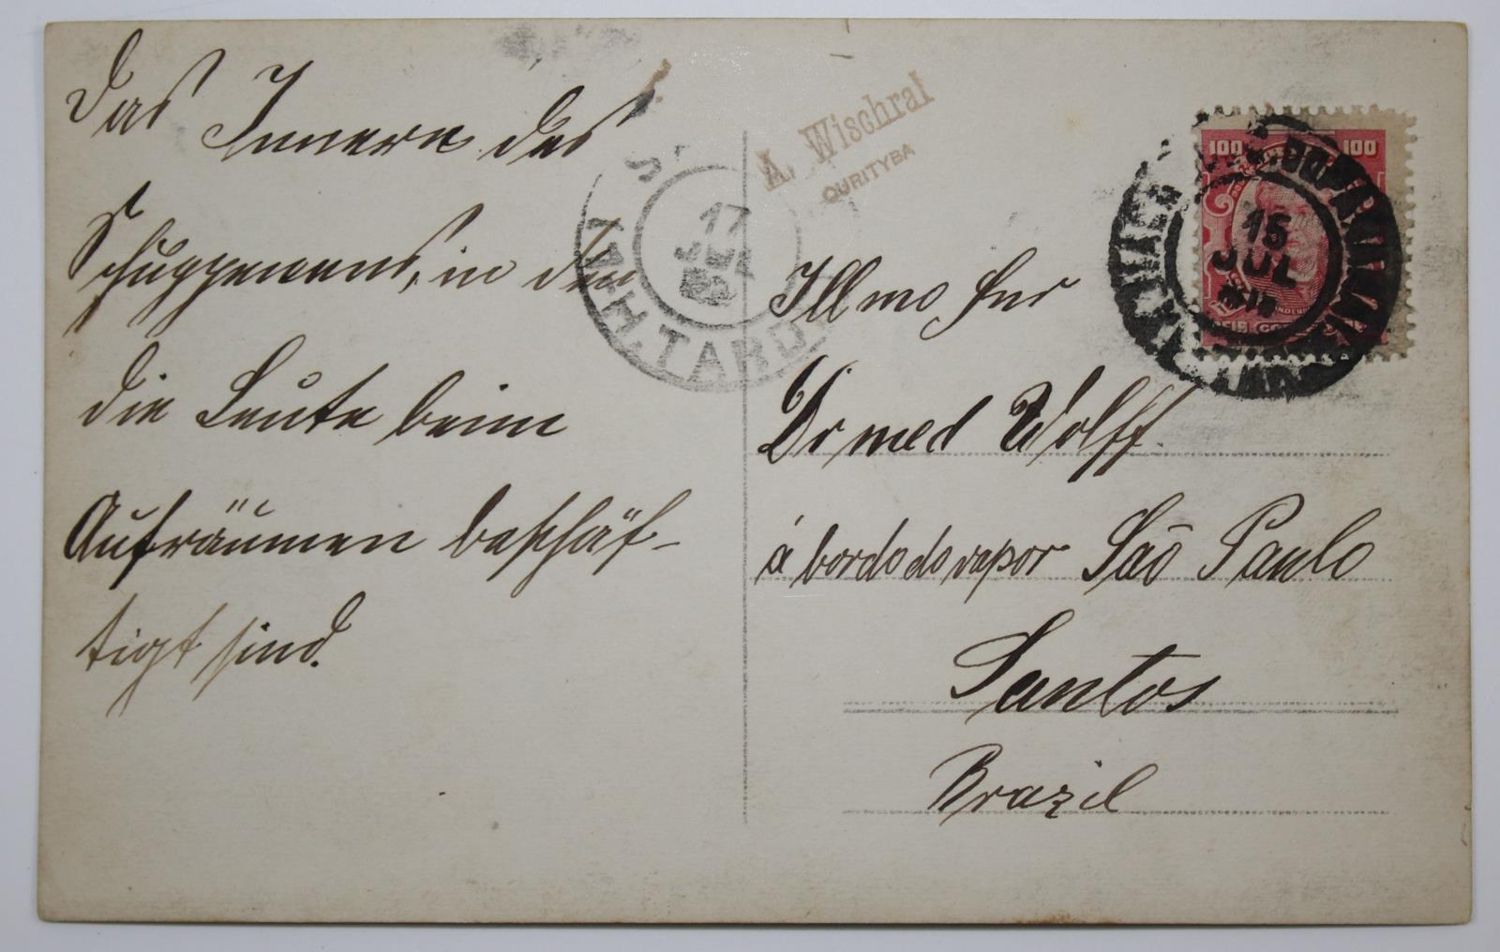 Das Innere des
Schuppenens, in dem
die Leute beim
Aufräumen beschäf-
tigt sind.
A. Wischral
CURITYBA
17
JUL
1ª H. TARDE
100 100
15
JUL
Illmo Snr
Dr med Wolff
á bordo do vapor São Paulo
Santos
Brazil